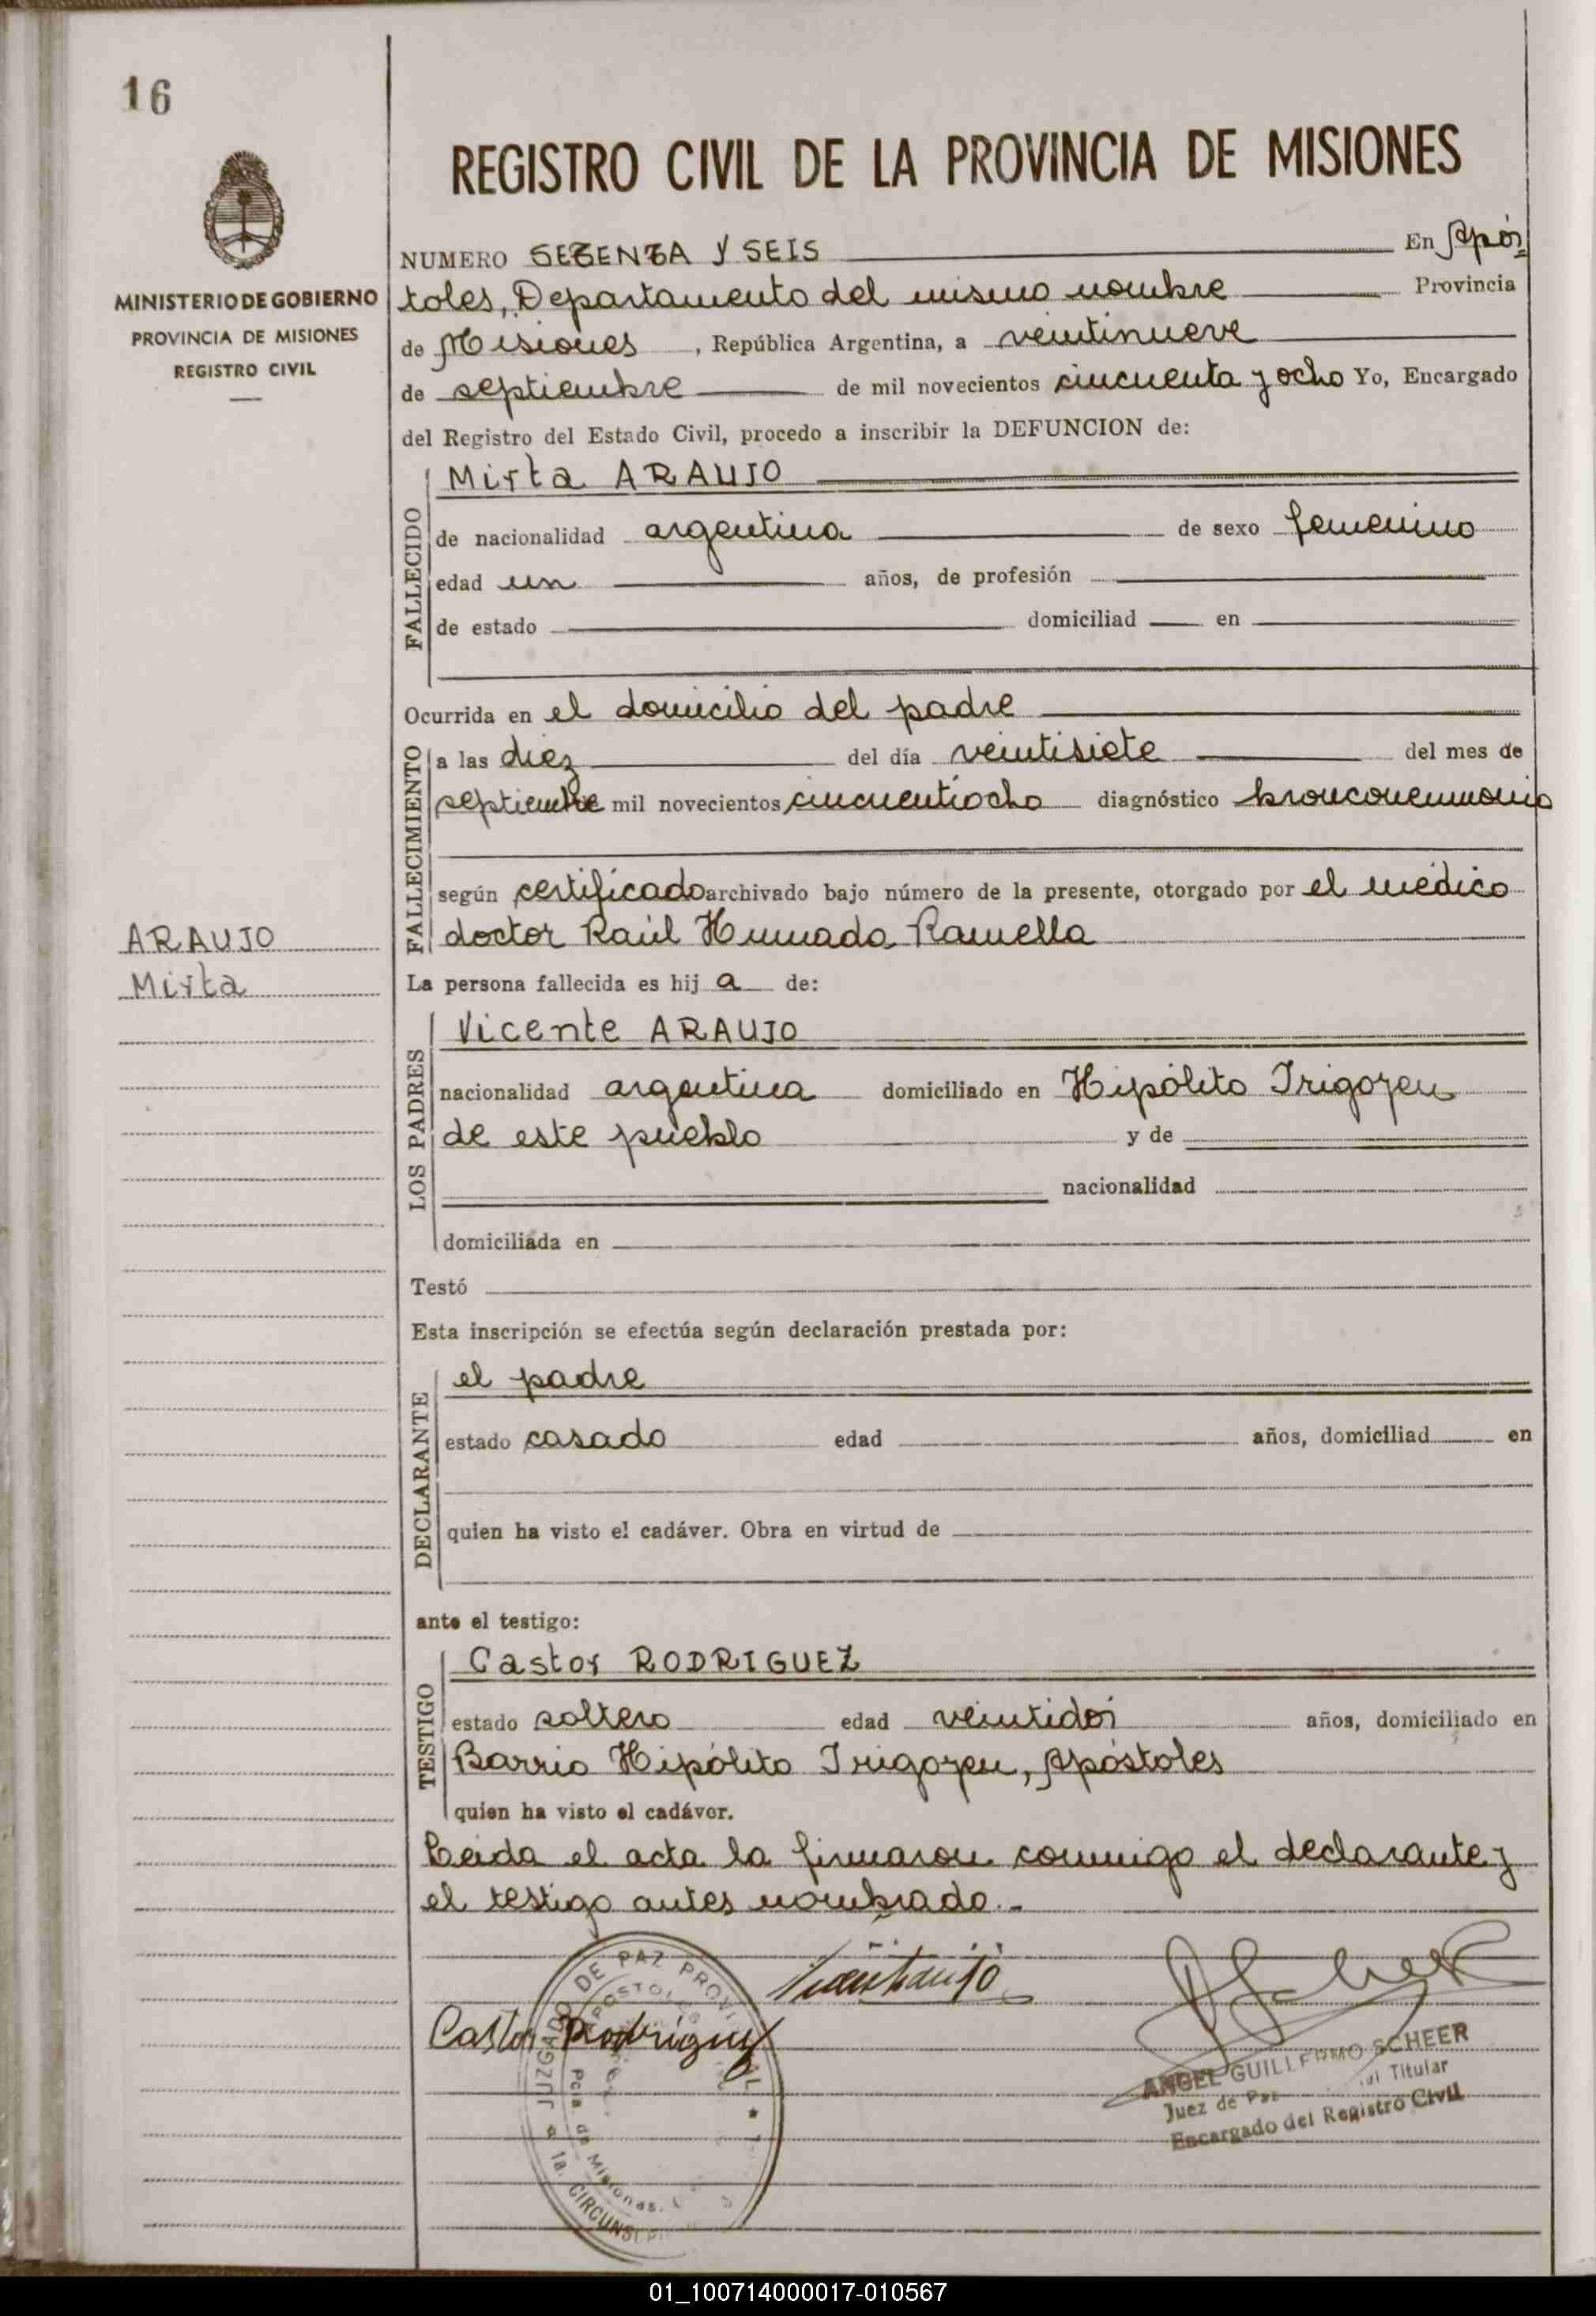 16
MINISTERIO DE GOBIERNO
PROVINCIA DE MISIONES
REGISTRO CIVIL
REGISTRO CIVIL DE LA PROVINCIA DE MISIONES
NUMERO SETENTA Y SEIS En Após
toles, Departamento del mismo nombre Provincia
de Misiones, República Argentina, a veintinueve
de septiembre de mil novecientos cincuenta y ocho Yo, Encargado
del Registro del Estado Civil, procedo a inscribir la DEFUNCION de:
FALLECIDO
Mirta ARAUJO
de nacionalidad argentina de sexo femenino
edad un años, de profesión
de estado domiciliad en
Ocurrida en el domicilio del padre
FALLECIMIENTO
a las diez del día veintisiete del mes de
septiembre mil novecientos cincuentiocho diagnóstico bronconeumonia
según certificado archivado bajo número de la presente, otorgado por el médico
doctor Raúl Ramella
ARAUJO
Mirta
La persona fallecida es hij a de:
LOS PADRES
Vicente ARAUJO
nacionalidad argentina domiciliado en Hipólito Irigoyen
de este pueblo y de
nacionalidad
domiciliada en
Testó
Esta inscripción se efectúa según declaración prestada por:
DECLARANTE
el padre
estado casado edad años, domiciliad en
quien ha visto el cadáver. Obra en virtud de
ante el testigo:
TESTIGO
Castor RODRIGUEZ
estado soltero edad veintidós años, domiciliado en
Barrio Hipólito Irigoyen, Apóstoles
quien ha visto el cadáver.
Leida el acta la firmaron conmigo el declarante y
el testigo antes nombrado.-
Castor Rodriguez
JUZGADO DE PAZ
APOSTOLES
Pcia. de Misiones.
1a.
ANGEL GUILLERMO SCHEER
Juez de Paz Titular
Encargado del Registro Civil
01_100714000017-010567